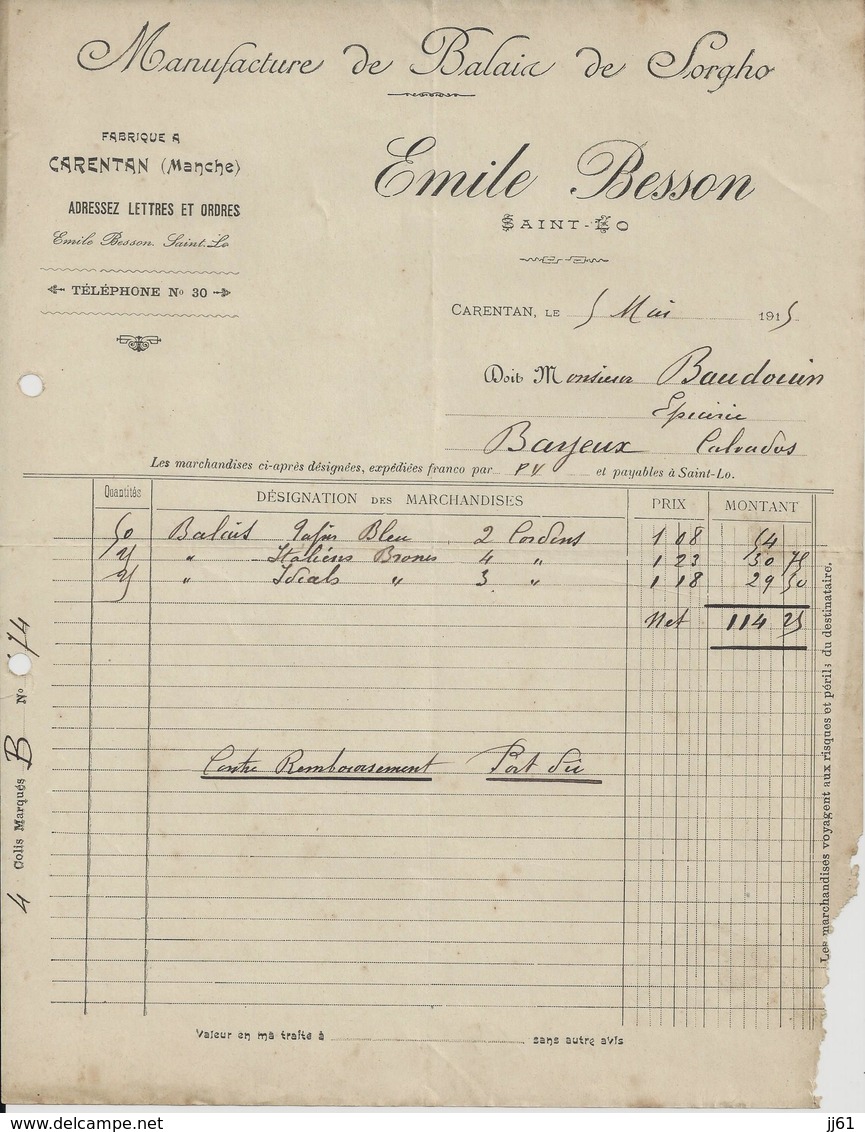 Manufacture de Balais de Sorgho
FABRIQUE A
CARENTAN (Manche)
ADRESSEZ LETTRES ET ORDRES
Emile Besson. Saint-Lo
TÉLÉPHONE No 30
Emile Besson
SAINT-LO
CARENTAN, LE 5 Mai 1915
Doit Monsieur Baudouin
Epicerie
Bayeux Calvados
Les marchandises ci-après désignées, expédiées franco par PV et payables à Saint-Lo.
Quantités DÉSIGNATION DES MARCHANDISES PRIX MONTANT
50 Balais Bleu 2 Cordons 1 08 54
25 " Italiens Bronés 4 " 1 23 30 75
25 " Idéals " 3 " 1 18 29 50
Net 114 25
Contre Remboursement Port dû
4 Colis Marqués B No 174
Les marchandises voyagent aux risques et périls du destinataire.
Valeur en ma traite à sans autre avis
www.delcampe.net
jj61